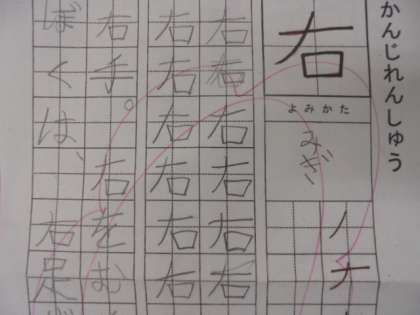 かんじれんしゅう
右
よみかた
みぎ
ノナ
右右右右右右
右右右右右右
右手。右をむ
ぼくは、右足